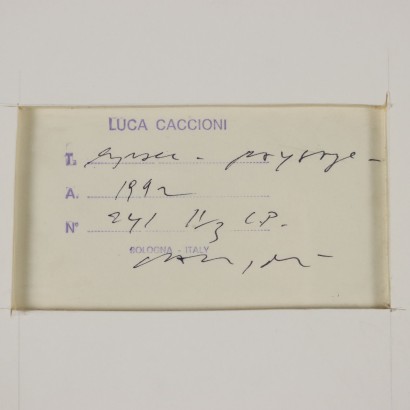 LUCA CACCIONI
T. - paysage -
A. 1992
N° 241 II/3 C.P.
BOLOGNA - ITALY